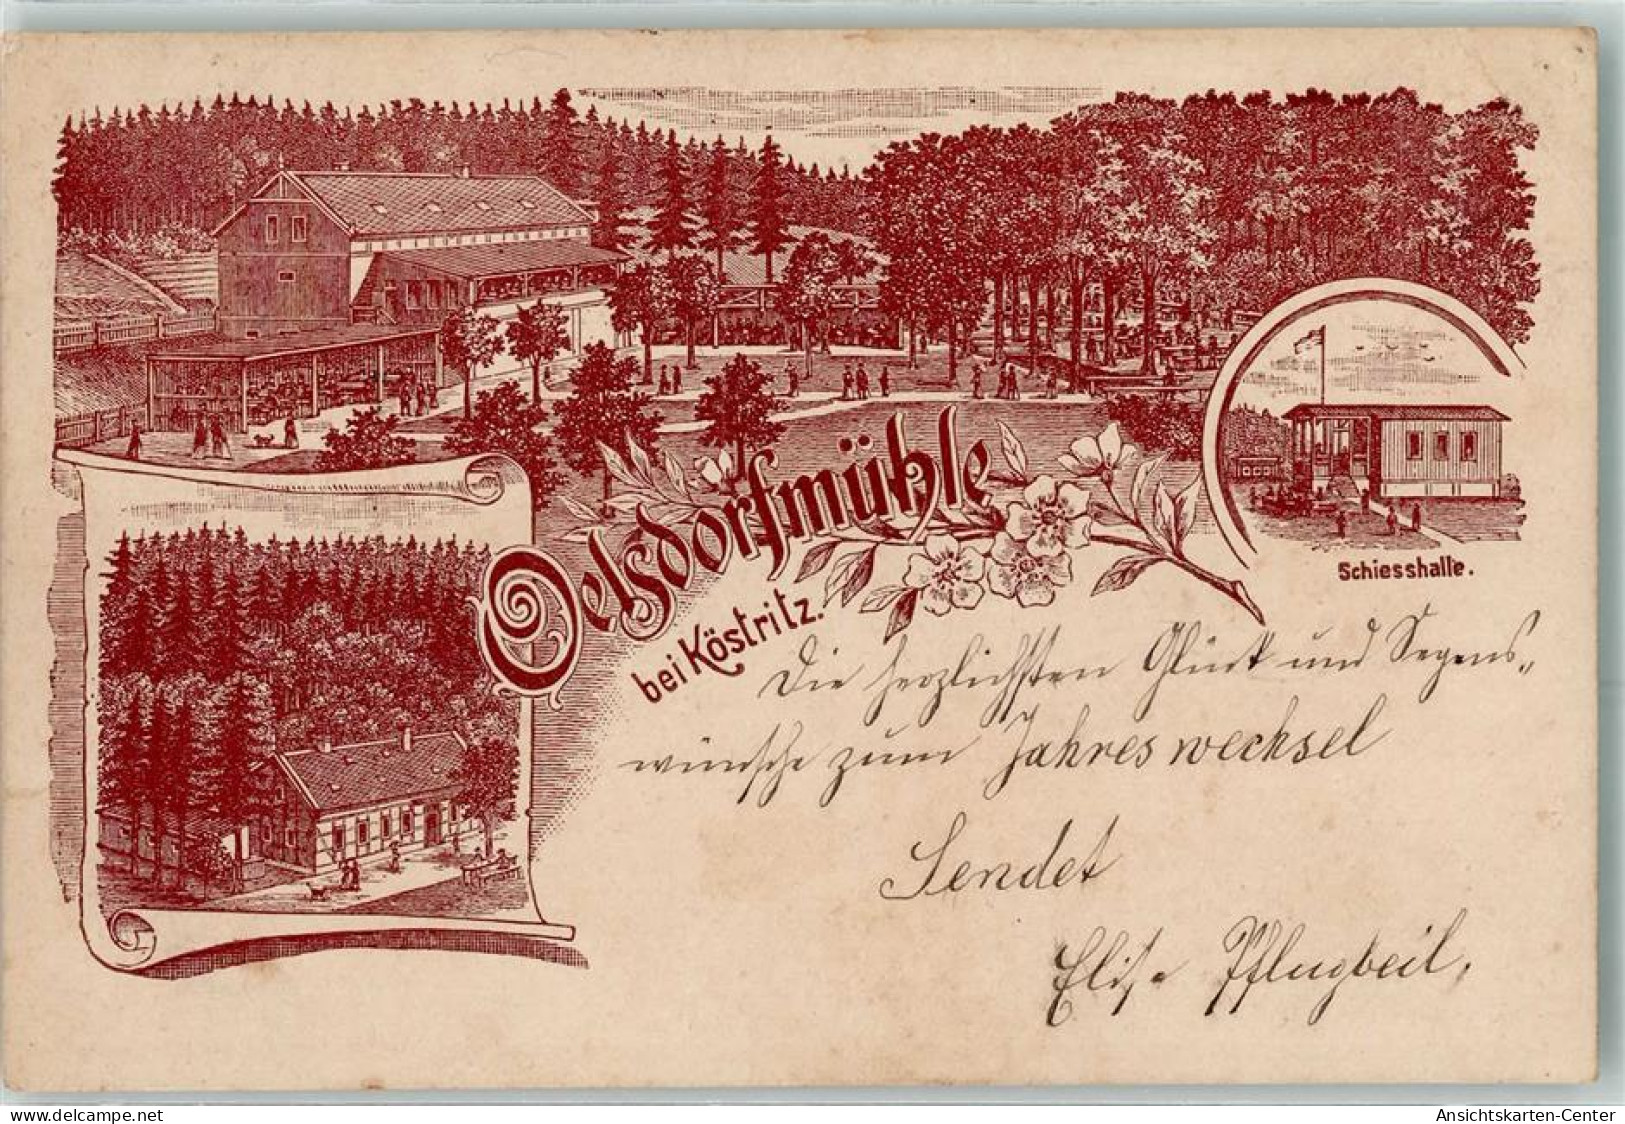 Oelsdorfmühle
bei Köstritz.
Schiesshalle.
Die herzlichsten Glück und Segens„
wünsche zum Jahreswechsel
Sendet
Elise Pflugbeil.
www.delcampe.net
Ansichtskarten-Center